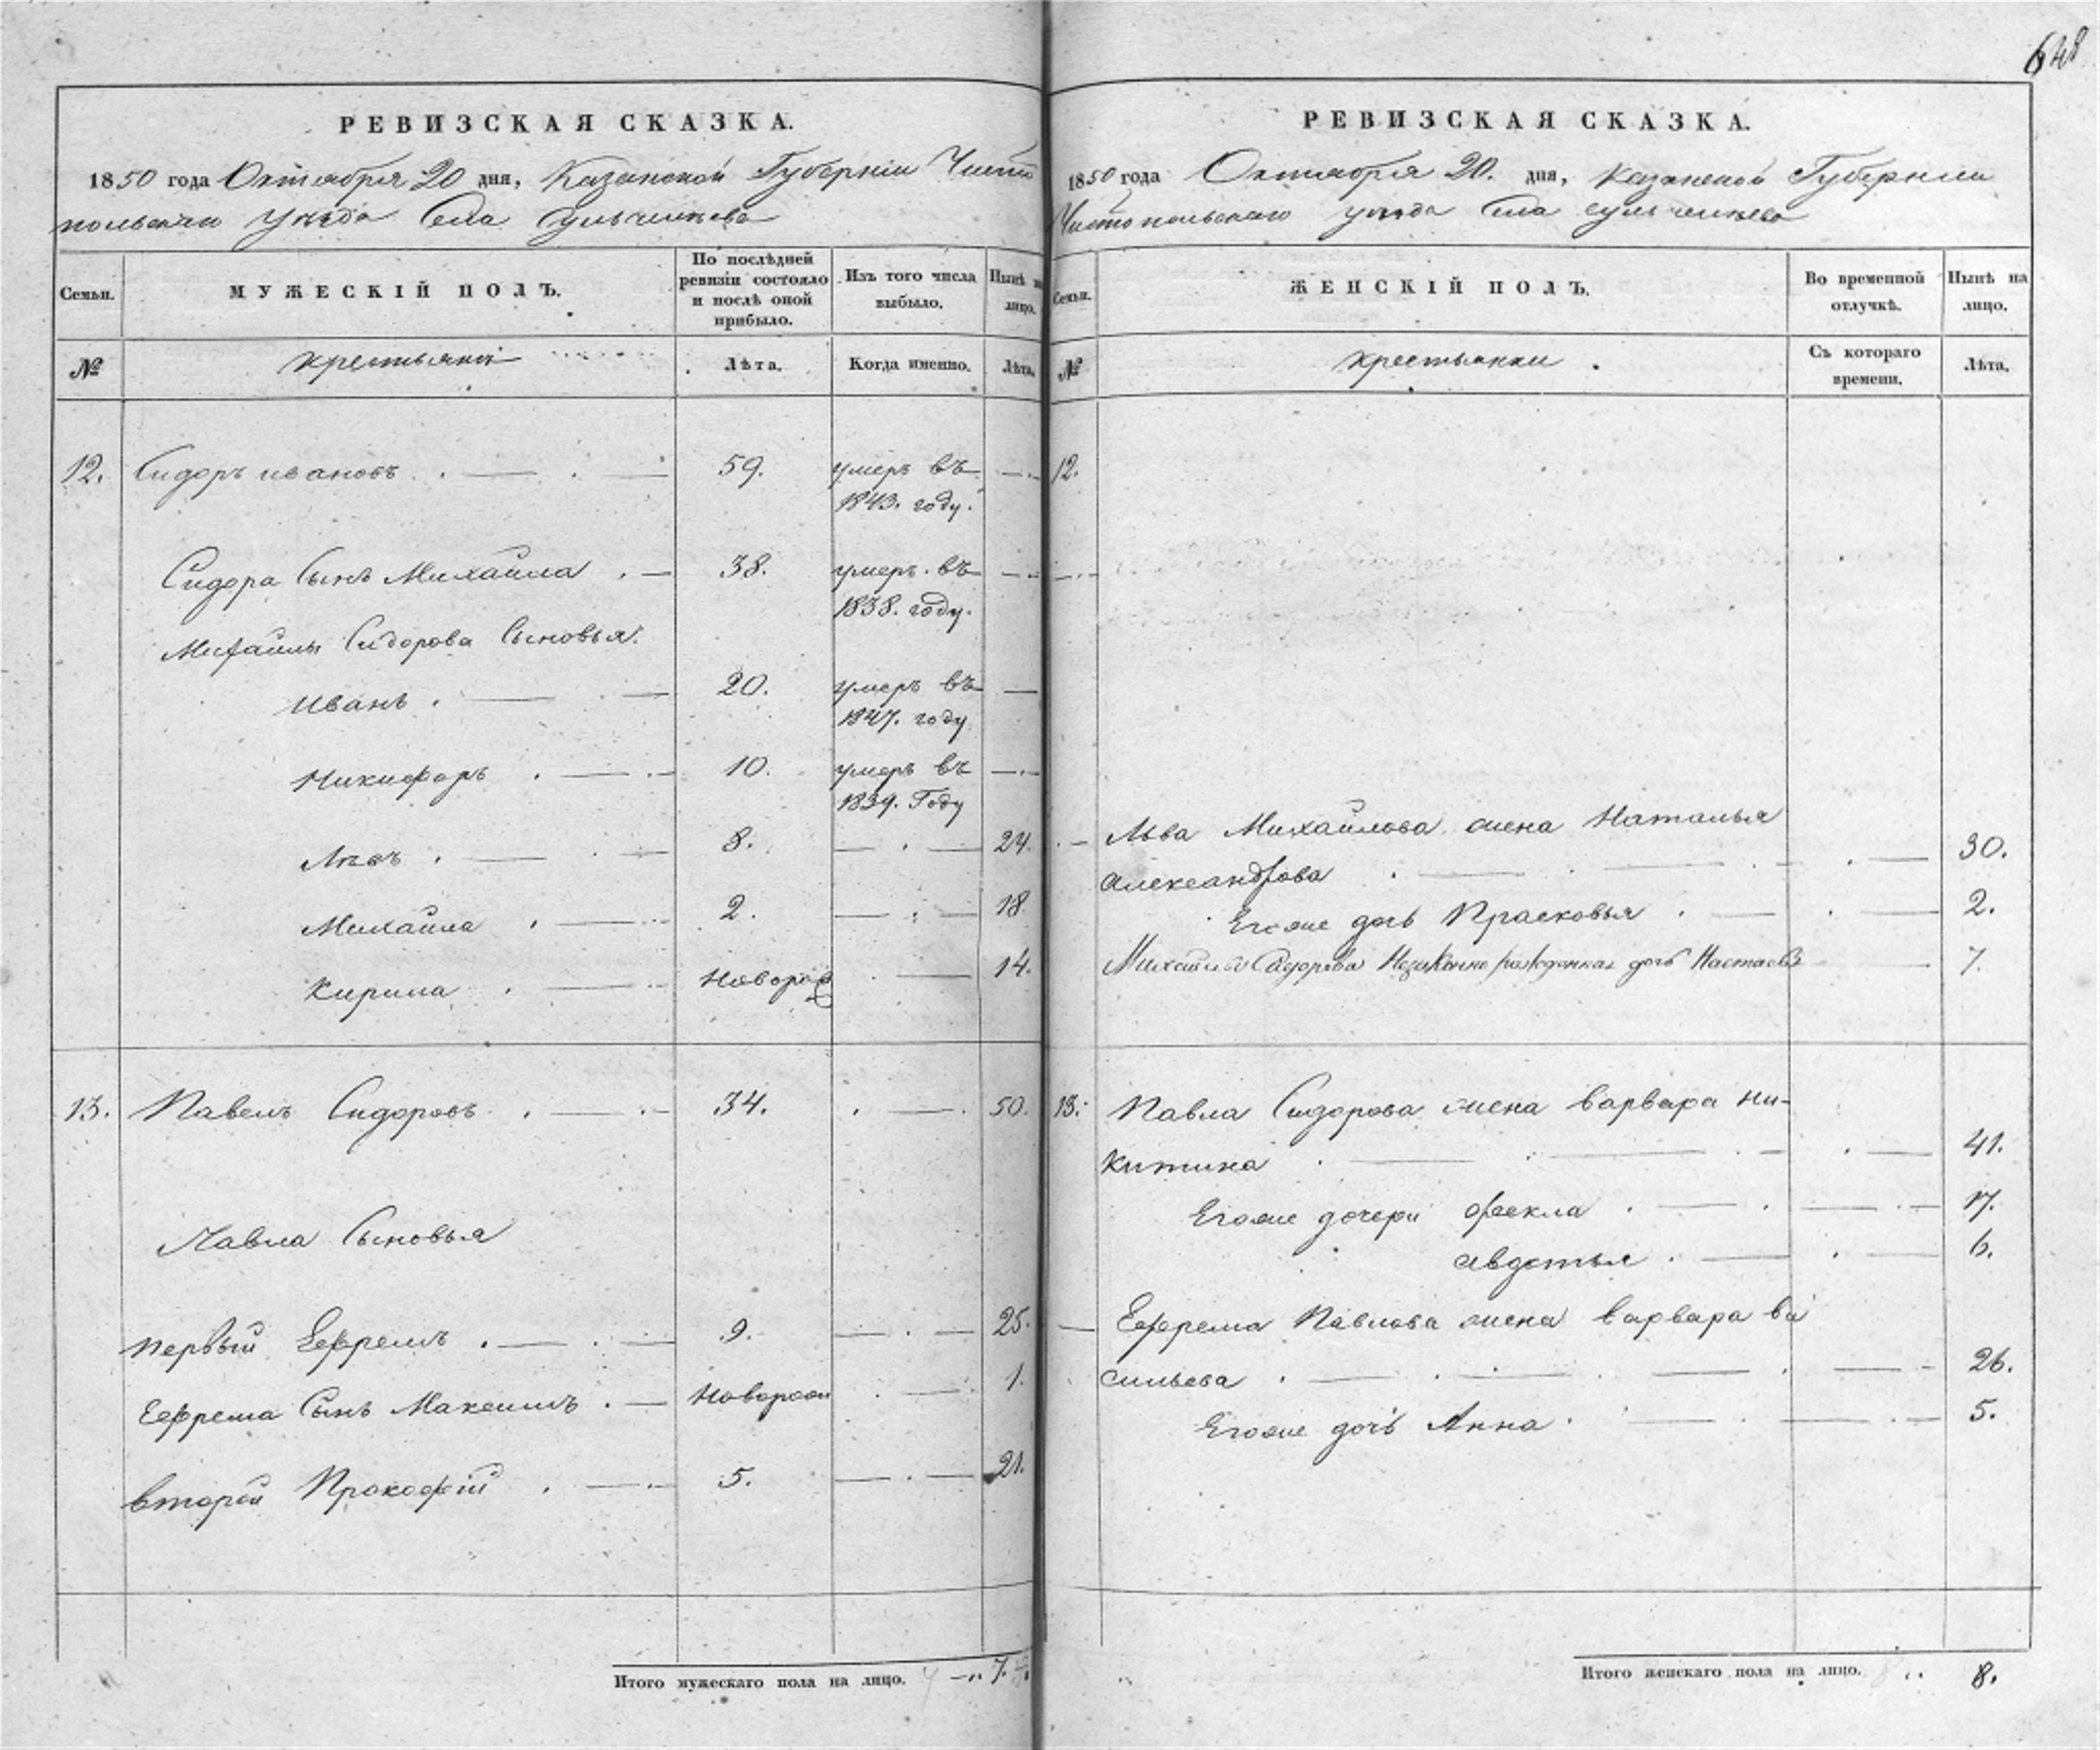 648
РЕВИЗСКАЯ СКАЗКА.
1850 года Октября 20 дня, Казанской Губерніи Чисто
польскаго Уѣзда Села Сульчеикева
Семьи. МУЖЕСКІЙ ПОЛЪ. По послѣдней ревизіи состояло и послѣ оной прибыло. Изъ того числа выбыло. Нынѣ на лицо.
№ крестьяне Лѣта. Когда именно. Лѣта.
12. Сидоръ ивановъ . — . — 59. умеръ въ — .
1843. году.
Сидора Сынъ Михайла . — 38. умеръ въ — .
1838. году.
Михайлы Сидорова Сыновья.
иванъ . — . — 20. умеръ въ —
1847. году
Никифоръ . — . — 10. умеръ въ — . —
1839. Году
Лѣвъ . — . — 8. — . — 24.
Михайла . — . 2. — . — 18
Кирила . — . Новорож . — 14.
13. Павелъ Сидоровъ . — . — 34. . — . 50.
Павла Сыновья
первый Ефремъ . — . — 9. — . — 25.
Ефрема Сынъ Максимъ . — Новорож . — . 1.
второй Прокофій . — . 5. — . — 21.
Итого мужескаго пола на лицо. 7.
РЕВИЗСКАЯ СКАЗКА.
1850 года Октября 20. дня, Казанской Губерніи
Чистопольскаго уѣзда Села сульчеикева
Семьи. ЖЕНСКІЙ ПОЛЪ. Во временной отлучкѣ. Нынѣ на лицо.
№ крестьянки . Съ котораго времени. Лѣта.
12.
Льва Михайлова жена Наталья
александрова . — . — . — 30.
Егоже дочь Прасковья . — . — 2.
Михайлы Сидорова Незаконно рожденная дочь Настасья — 7.
13. Павла Сидорова жена варвара ни-
китина . — . — . — . — 41.
Егоже дочери Фекла . — . — . — 17.
авдотья . — . — 6.
Ефрема Павлова жена варвара ва
сильева . — . — . — . — 26.
Егоже дочь Анна . — . — . — 5.
Итого женскаго пола на лицо. 8.